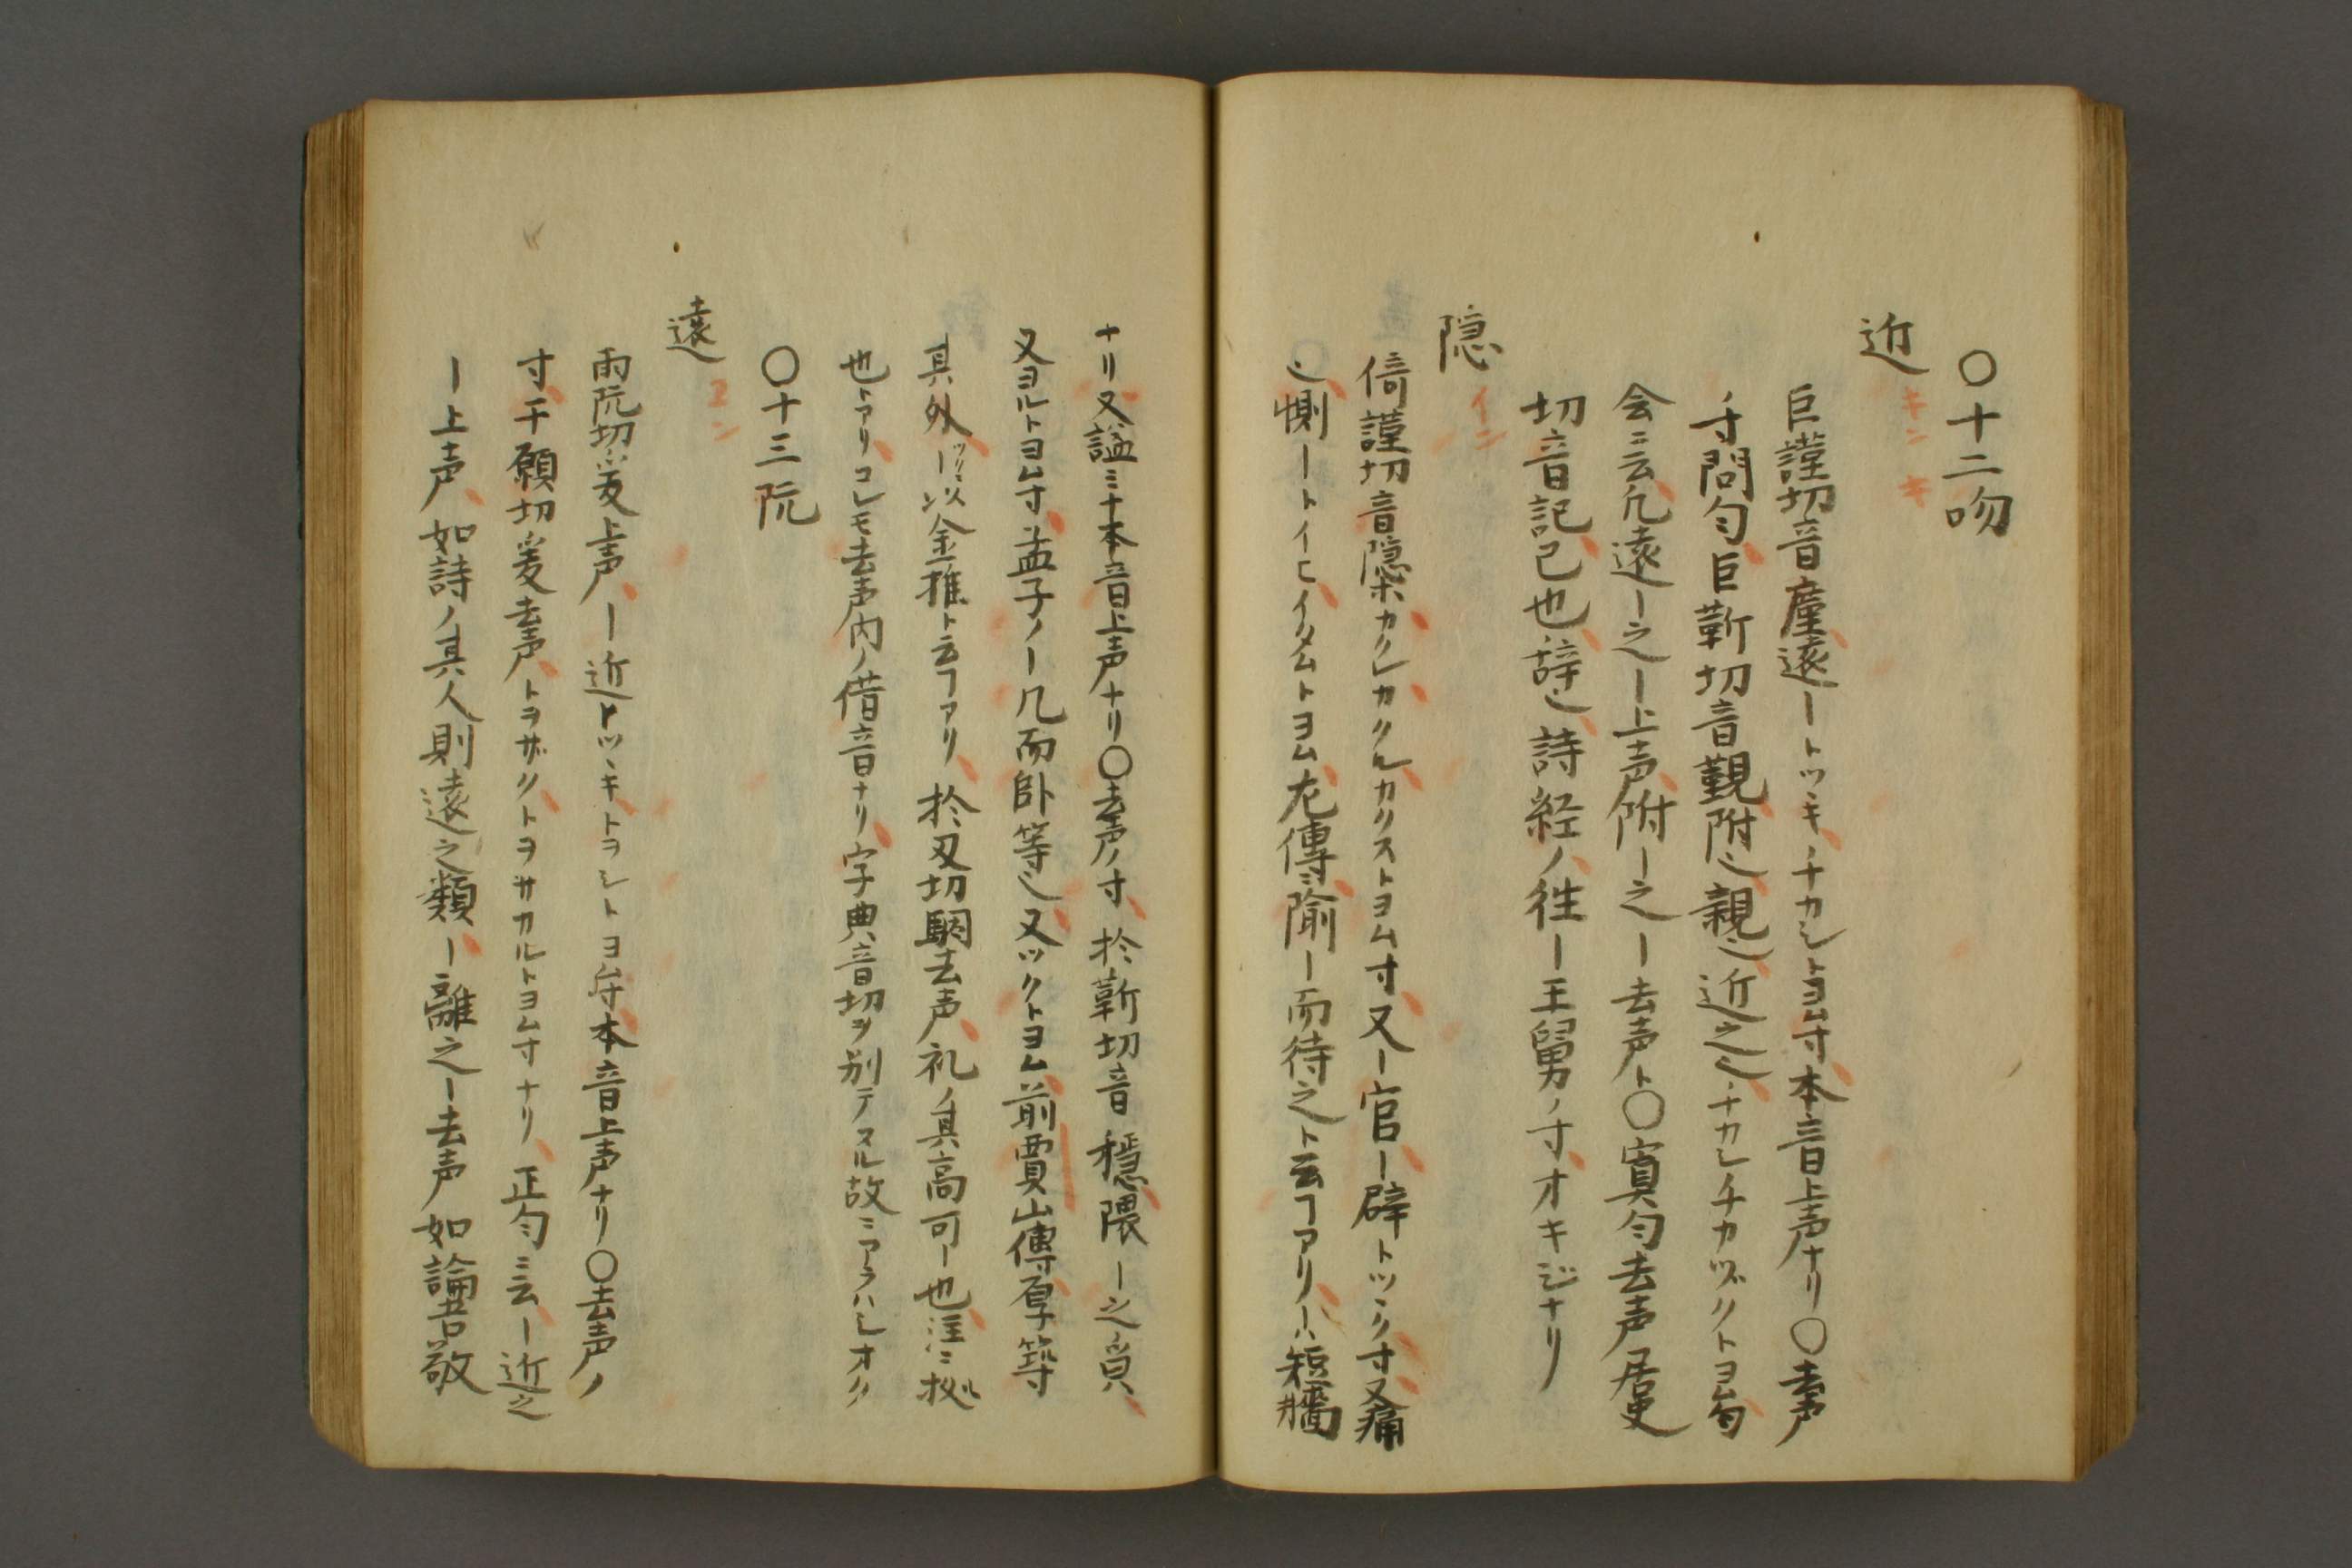 〇十二吻
近 キンキ
巨謹切音瘽遠ートツヾキチカシトヨム寸本音上声ナリ〇去声
ノ寸問匀巨靳切音覲附也親也近之也チカシチカヅクトヨム匀
会ニ云凡遠ー之ー上声附ー之ー去声ト〇寘匀去声居吏
切音記已也辞也詩経ノ徃ー王舅ノ寸オキジナリ
隠 イン
倚謹切音櫽カクレカクルカクストヨム寸又ー官ー辟トツヾク寸又痛
也惻ートイヒイタムトヨム左傳ニ隃ー而待之ト云ヿアリーハ短牆
ナリ又謚ニ十本音上声ナリ〇去声ノ寸於靳切音穩隈ー之皃
又ヨルトヨム寸孟子ノー几而卧等也又ツクトヨム前賈山傳厚築
其外ー以金推ト云ヿアリ於刄切駰去声礼ノ其高可ー也注ニ拠ル
也トアリコレモ去声内ノ借音ナリ字典音切ヲ別テスル故ニアラハシオク
〇十三阮
遠 ヱン
雨阮切爰上声ー近トツヾキトヲシトヨム寸本音上声ナリ〇去声ノ
寸于願切爰去声トヲザクトヲサカルトヨム寸ナリ正匀ニ云ー近之
ー上声如詩ノ其人則遠之類ー離之ー去声如論吾敬